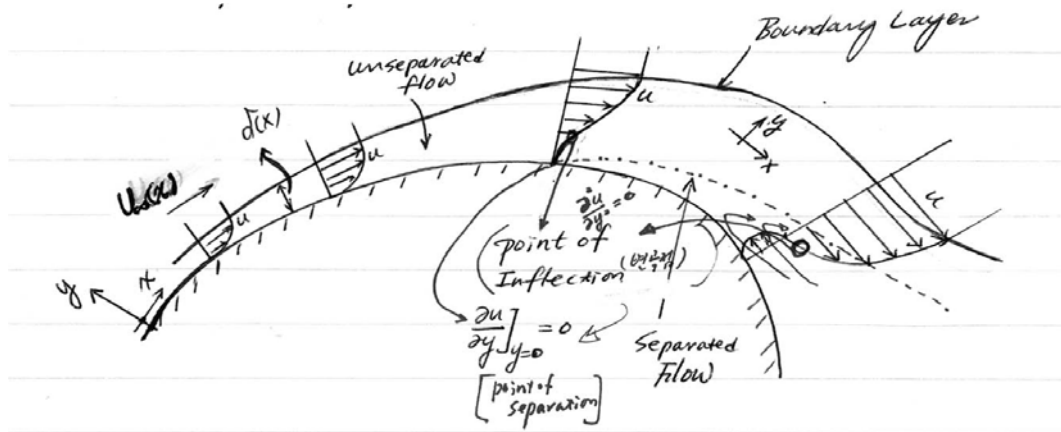 Boundary Layer
unseparated
flow
u
δ(x)
u
y
x
U∞(x)
u
u
y
x
∂²u/∂y² = 0
(point of
Inflection (변곡점))
∂u/∂y]y=0 = 0
[point of
separation]
Separated
Flow